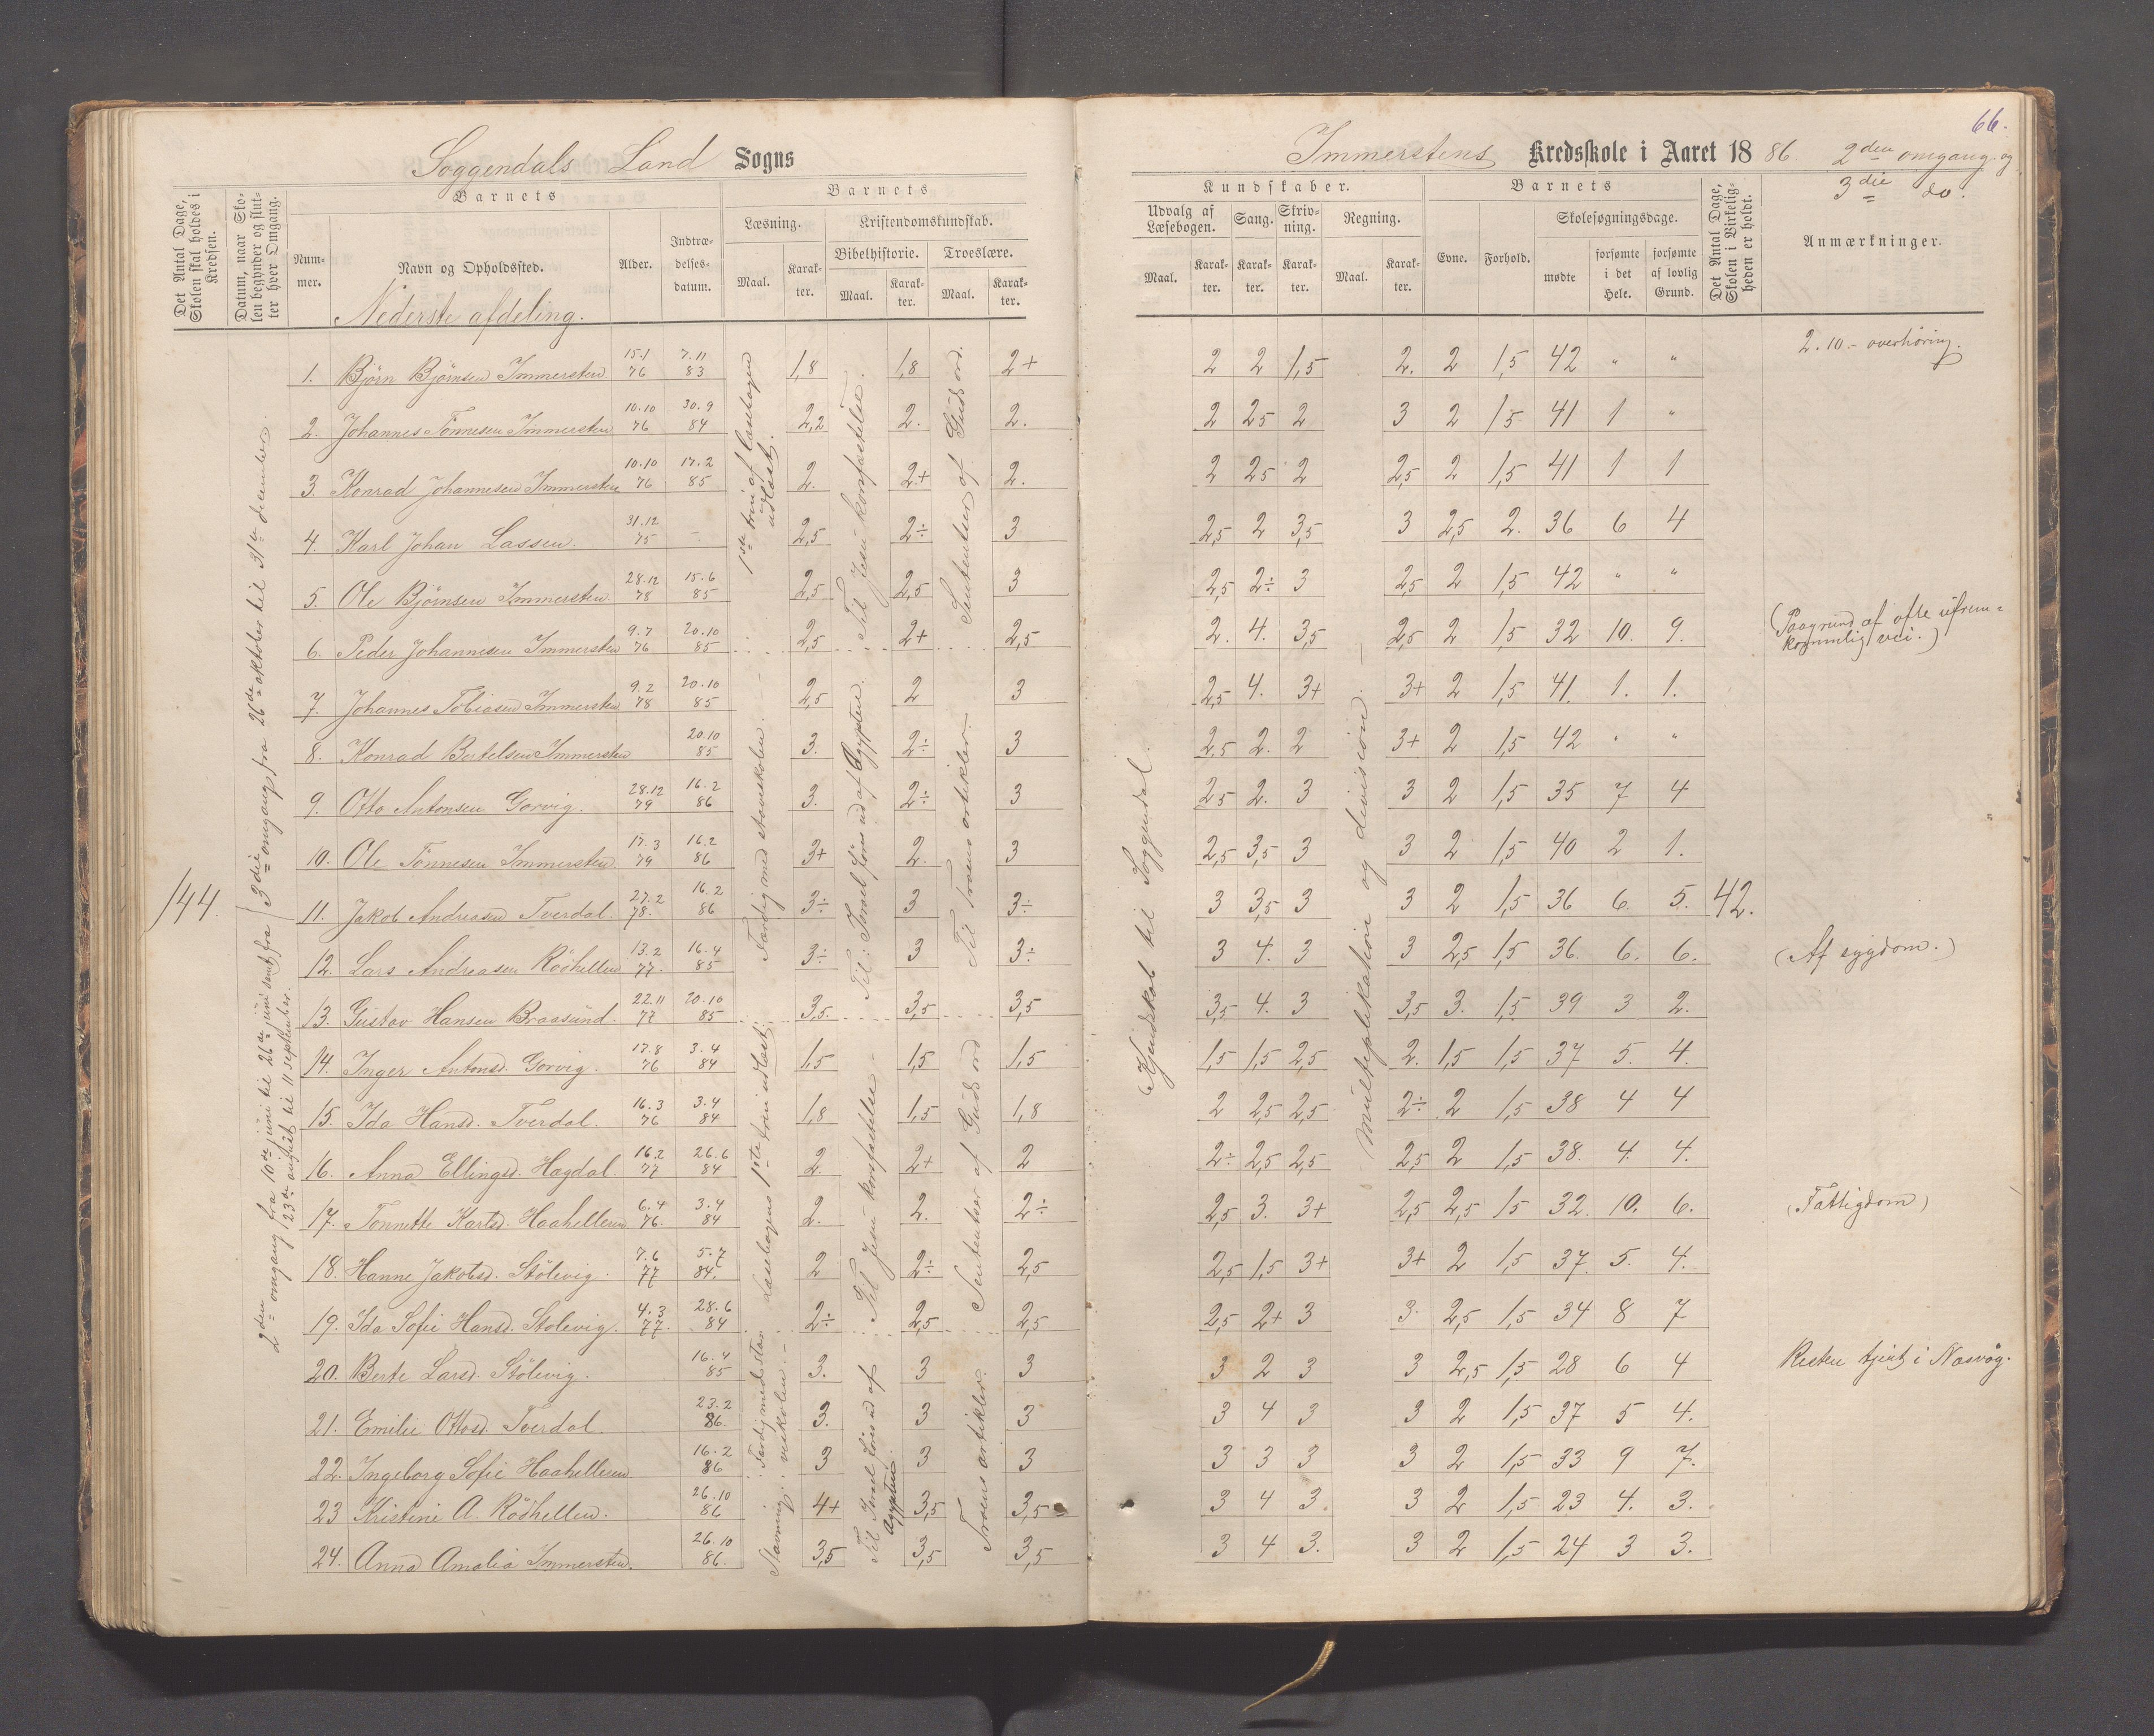 66.
Soggendals Land Sogns
Immerstens Kredsskole i Aaret 1886. 2den omgang og
3die do.
Det Antal Dage, Skolen skal holdes i Kredsen.
Datum, naar Skolen begynder og slutter hver Omgang.
Barnets
Nummer.
Navn og Opholdssted.
Alder.
Indtrædelsesdatum.
Barnets
Læsning.
Maal.
Karakter.
Kristendomskundskab.
Bibelhistorie.
Maal.
Karakter.
Troeslære.
Maal.
Karakter.
Kundskaber.
Udvalg af Læsebogen.
Maal.
Karakter.
Sang.
Karakter.
Skrivning.
Karakter.
Regning.
Maal.
Karakter.
Barnets
Evne.
Forhold.
Skolesøgningsdage.
mødte
forsømte i det Hele.
forsømte af lovlig Grund.
Det Antal Dage, Skolen i Virkeligheden er holdt.
Anmærkninger.
Nederste afdeling.
144.
2den omgang fra 10de juni til 26de juni samt fra 23de august til 11 september.
3die omgang fra 26de oktober til 31te december.
1ste trin af læsebogen udlæst.
Færdig med staveskolen.
læsebogens 1ste trin udlæst.
Til Jesu korsfæstelse.
Til: Israel føres ud af Ægypten.
Til Jesu korsfæstelse
Til Israel føres ud af Ægypten
Sententser af Guds ord.
Til Troens artikler.
Sententser af Guds ord
Troens artikler.
Kjendskab til Soggendal.
Multiplikation og division.
1. Björn Björnsen Immersten 15.1 76 7.11 83 1,8 1,8 2+ 2 2 1,5 2. 2 1,5 42 " " 2.10.- overhøring.
2. Johannes Tønnesen Immersten 10.10 76 30.9 84 2,2 2. 2. 2 2,5 2 3 2 1,5 41 1 "
3. Konrad Johannesen Immersten 10.10 76 17.2 85 2. 2+ 2. 2 2,5 2 2,5 2 1,5 41 1 1
4. Karl Johan Lassen. 31.12 75 - 2,5 2÷ 3 2,5 2 3,5 3 2,5 2. 36 6 4
5. Ole Björnsen Immersten. 28.12 78 15.6 85 2,5 2,5 3 2,5 2÷ 3 2,5 2 1,5 42 " "
6. Peder Johannesen Immersten 9.7 76 20.10 85 2,5 2+ 2,5 2. 4. 3,5 2,5 2 1,5 32 10. 9. (Paagrund af ofte ufrem=
kommelig vei.)
7. Johannes Tobiasen Immersten 9.2 78 20.10 85 2,5 2 3 2,5 4. 3+ 3+ 2 1,5 41. 1. 1.
8. Konrad Bertelsen Immersten 20.10 85 3. 2÷ 3 2,5 2. 2 3+ 2 1,5 42 " "
9. Otto Antonsen Gorvig. 28.12 79 16.2 86 3. 2÷ 3 2,5 2. 3 3 2 1,5 35 7 4
10. Ole Tønnesen Immersten. 17.3 79 16.2 86 3+ 2. 3 2,5 3,5 3 3 2 1,5 40 2 1.
11. Jakob Andreasen Tverdal. 27.2 78. 16.2 86 3÷ 3 3÷ 3 3,5 3 3 2 1,5 36 6. 5. 42.
12. Lars Andreasen Rödhellen 13.2 77. 16.4 85 3÷ 3 3÷ 3 4. 3 3 2,5 1,5 36. 6. 6. (Af sygdom.)
13. Gustav Hansen Braasund. 22.11 77 20.10 85 3,5. 3,5 3,5 3,5 4. 3 3,5 3. 1,5 39 3 2.
14. Inger Antonsd. Gorvig. 17.8 76 3.4 84 1,5 1,5 1,5 1,5 1,5 2,5 2. 1,5 1,5 37 5. 4.
15. Ida Hansd. Tverdal. 16.3 76 3.4 84 1,8 1,5 1,8 2 2,5 2,5 2÷ 2 1,5 38 4 4
16. Anna Ellingsd. Hagdal. 16.2 77 26.6 84 2. 2+ 2 2÷ 2,5 2,5 2,5 2 1,5 38. 4. 4.
17. Tonnette Karlsd. Haahelleren 6.4 76. 3.4 84 2. 2. 2÷ 2,5 3. 3+ 2,5 2,5 1,5 32. 10. 6. (Fattigdom)
18. Hanne Jakobsd. Stölevig. 7.6 77 5.7 84. 2 2÷ 2,5 2,5 1,5 3+ 3+ 2 1,5 37. 5. 4.
19. Ida Sofie Hansd. Stölevig. 4.3 77. 28.6 84 2÷ 2,5 2,5 2,5 2+ 3 3. 2,5 1,5 34 8 7
20. Berte Larsd. Stölevig. 16.4 85 3. 3 3 3 2 3 3 2,5 1,5 28 6 4 Resten tjent i Nasvåg.
21. Emilie Ottosd. Tverdal. 23.2 86. 3. 3 3 3 4 3 3 2 1,5 37 5 4.
22. Ingeborg Sofie Haahelleren 16.2 86 3 3 3 3 3 3 3 2 1,5 33 9 7.
23 Kristine A. Rödhellen. 26.10 86 4+ 3,5 3,5 3 4 3. 3 2 1,5 23 4. 3.
24. Anna Amalia Immersten. 26.10 86. 3,5 3,5 3,5 3 4 3. 3 2 1,5 24 3 3.